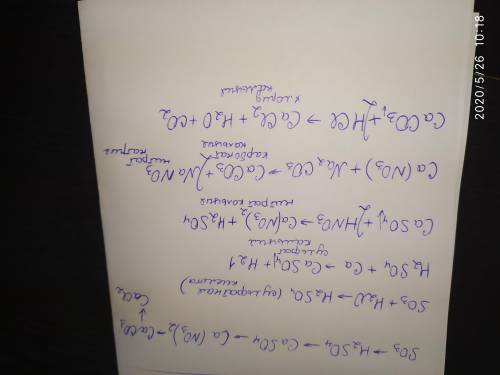 SO3 → H2SO4 → CaSO4 → Ca(NO3)2 → CaCO3
↓
CaCl2
SO3 + H2O → H2SO4 (сульфатная
кислота)
H2SO4 + Ca → CaSO4 + H2↑
сульфат
кальция
CaSO4↓ + 2HNO3 → Ca(NO3)2 + H2SO4
нитрат кальция
Ca(NO3) + Na2CO3 → CaCO3 + 2NaNO3
карбонат
кальция
нитрат
натрия
CaCO3↓ + 2HCl → CaCl2 + H2O + CO2
хлорид
кальция
2020/5/26 10:18